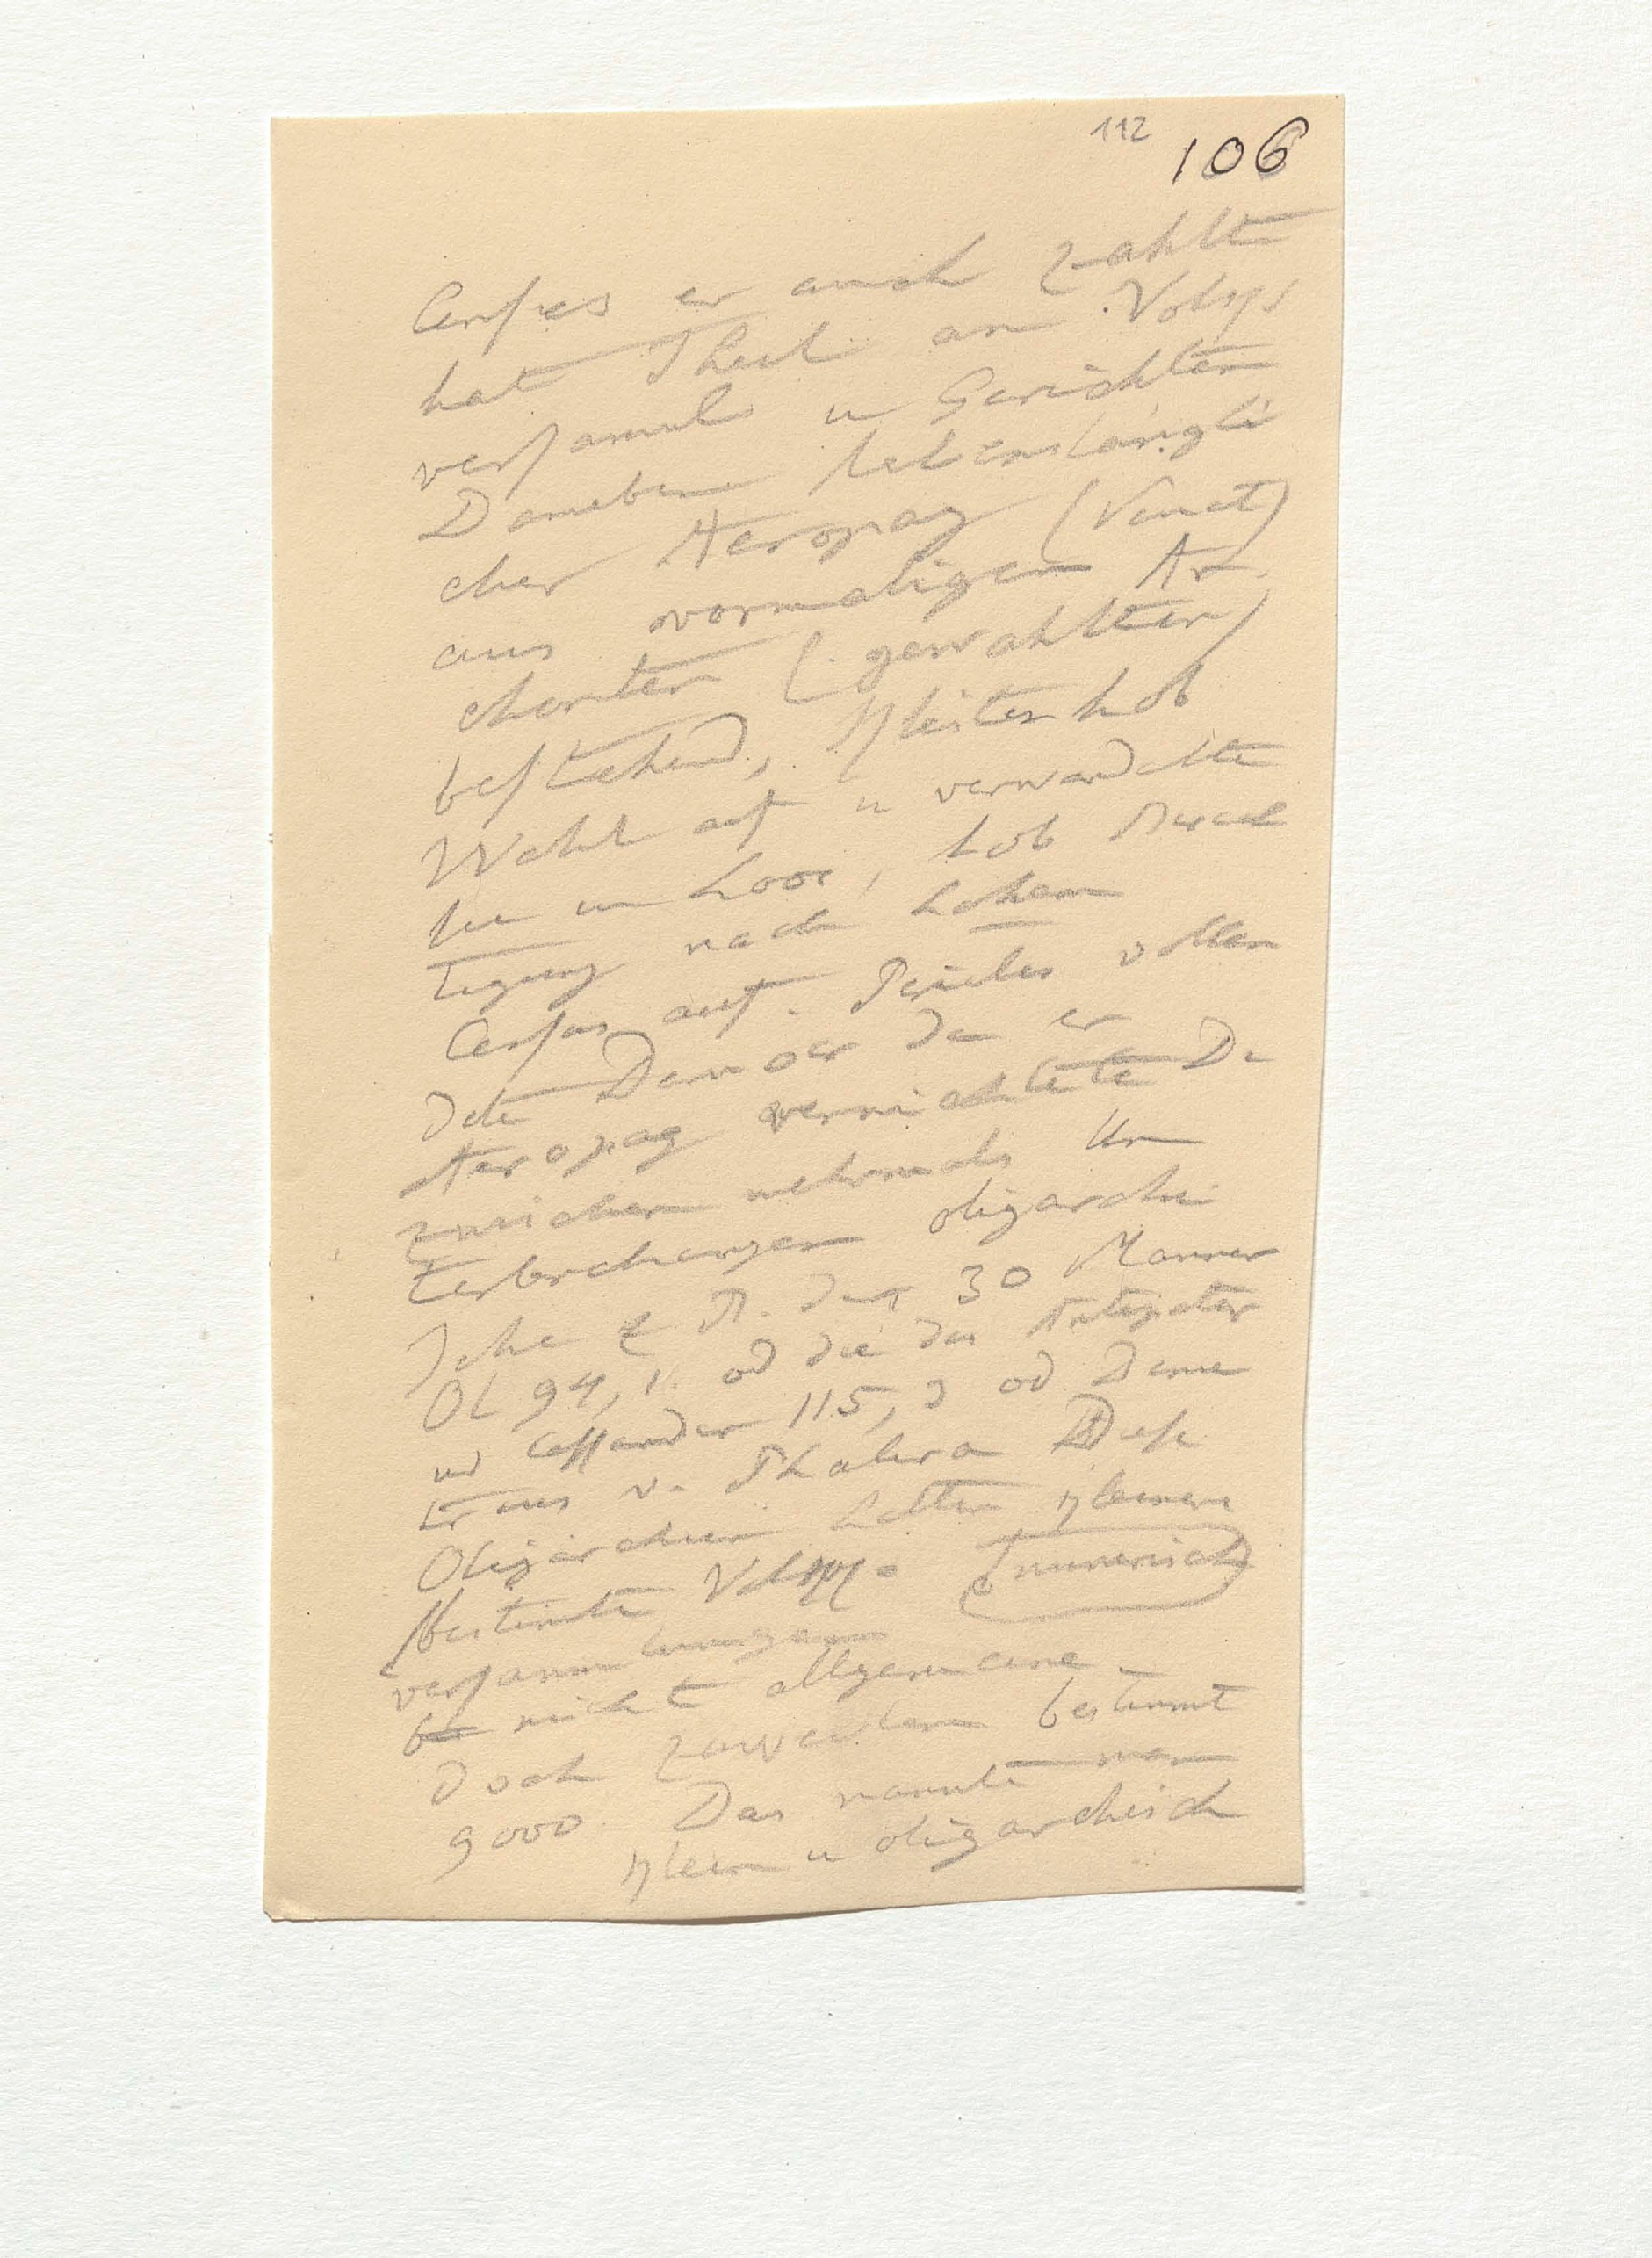 112
106
Census er auch zahlte
hat Theil an Volks
versaml u Gerichten
Daneben lebenslängli
cher Aeropag (Senat)
aus vormaligen Ar
chonten (gewahlten)
bestehend, Kleisten hob
Wahl auf u verwandelte
sie in Loos, hob Berech
tigung nach hohem
Census auf. Pericles vollen
dete Demos da er
Aeropag vernichtete Da
zwischen mehrmals Un
terbrechungen oligarchi
sche z B. der 30 Manner
Ol 94, 1. od die des Antipater
und Cassander 115, 3 od Deme
trius v. Phalera Diese
Oligarchien hatten kleinere
bestimte Volks (numerisch)
versammlungen
nicht allgemeine
doch zuweilen bestimmt
9000 Das nannte man
klein u oligarchisch